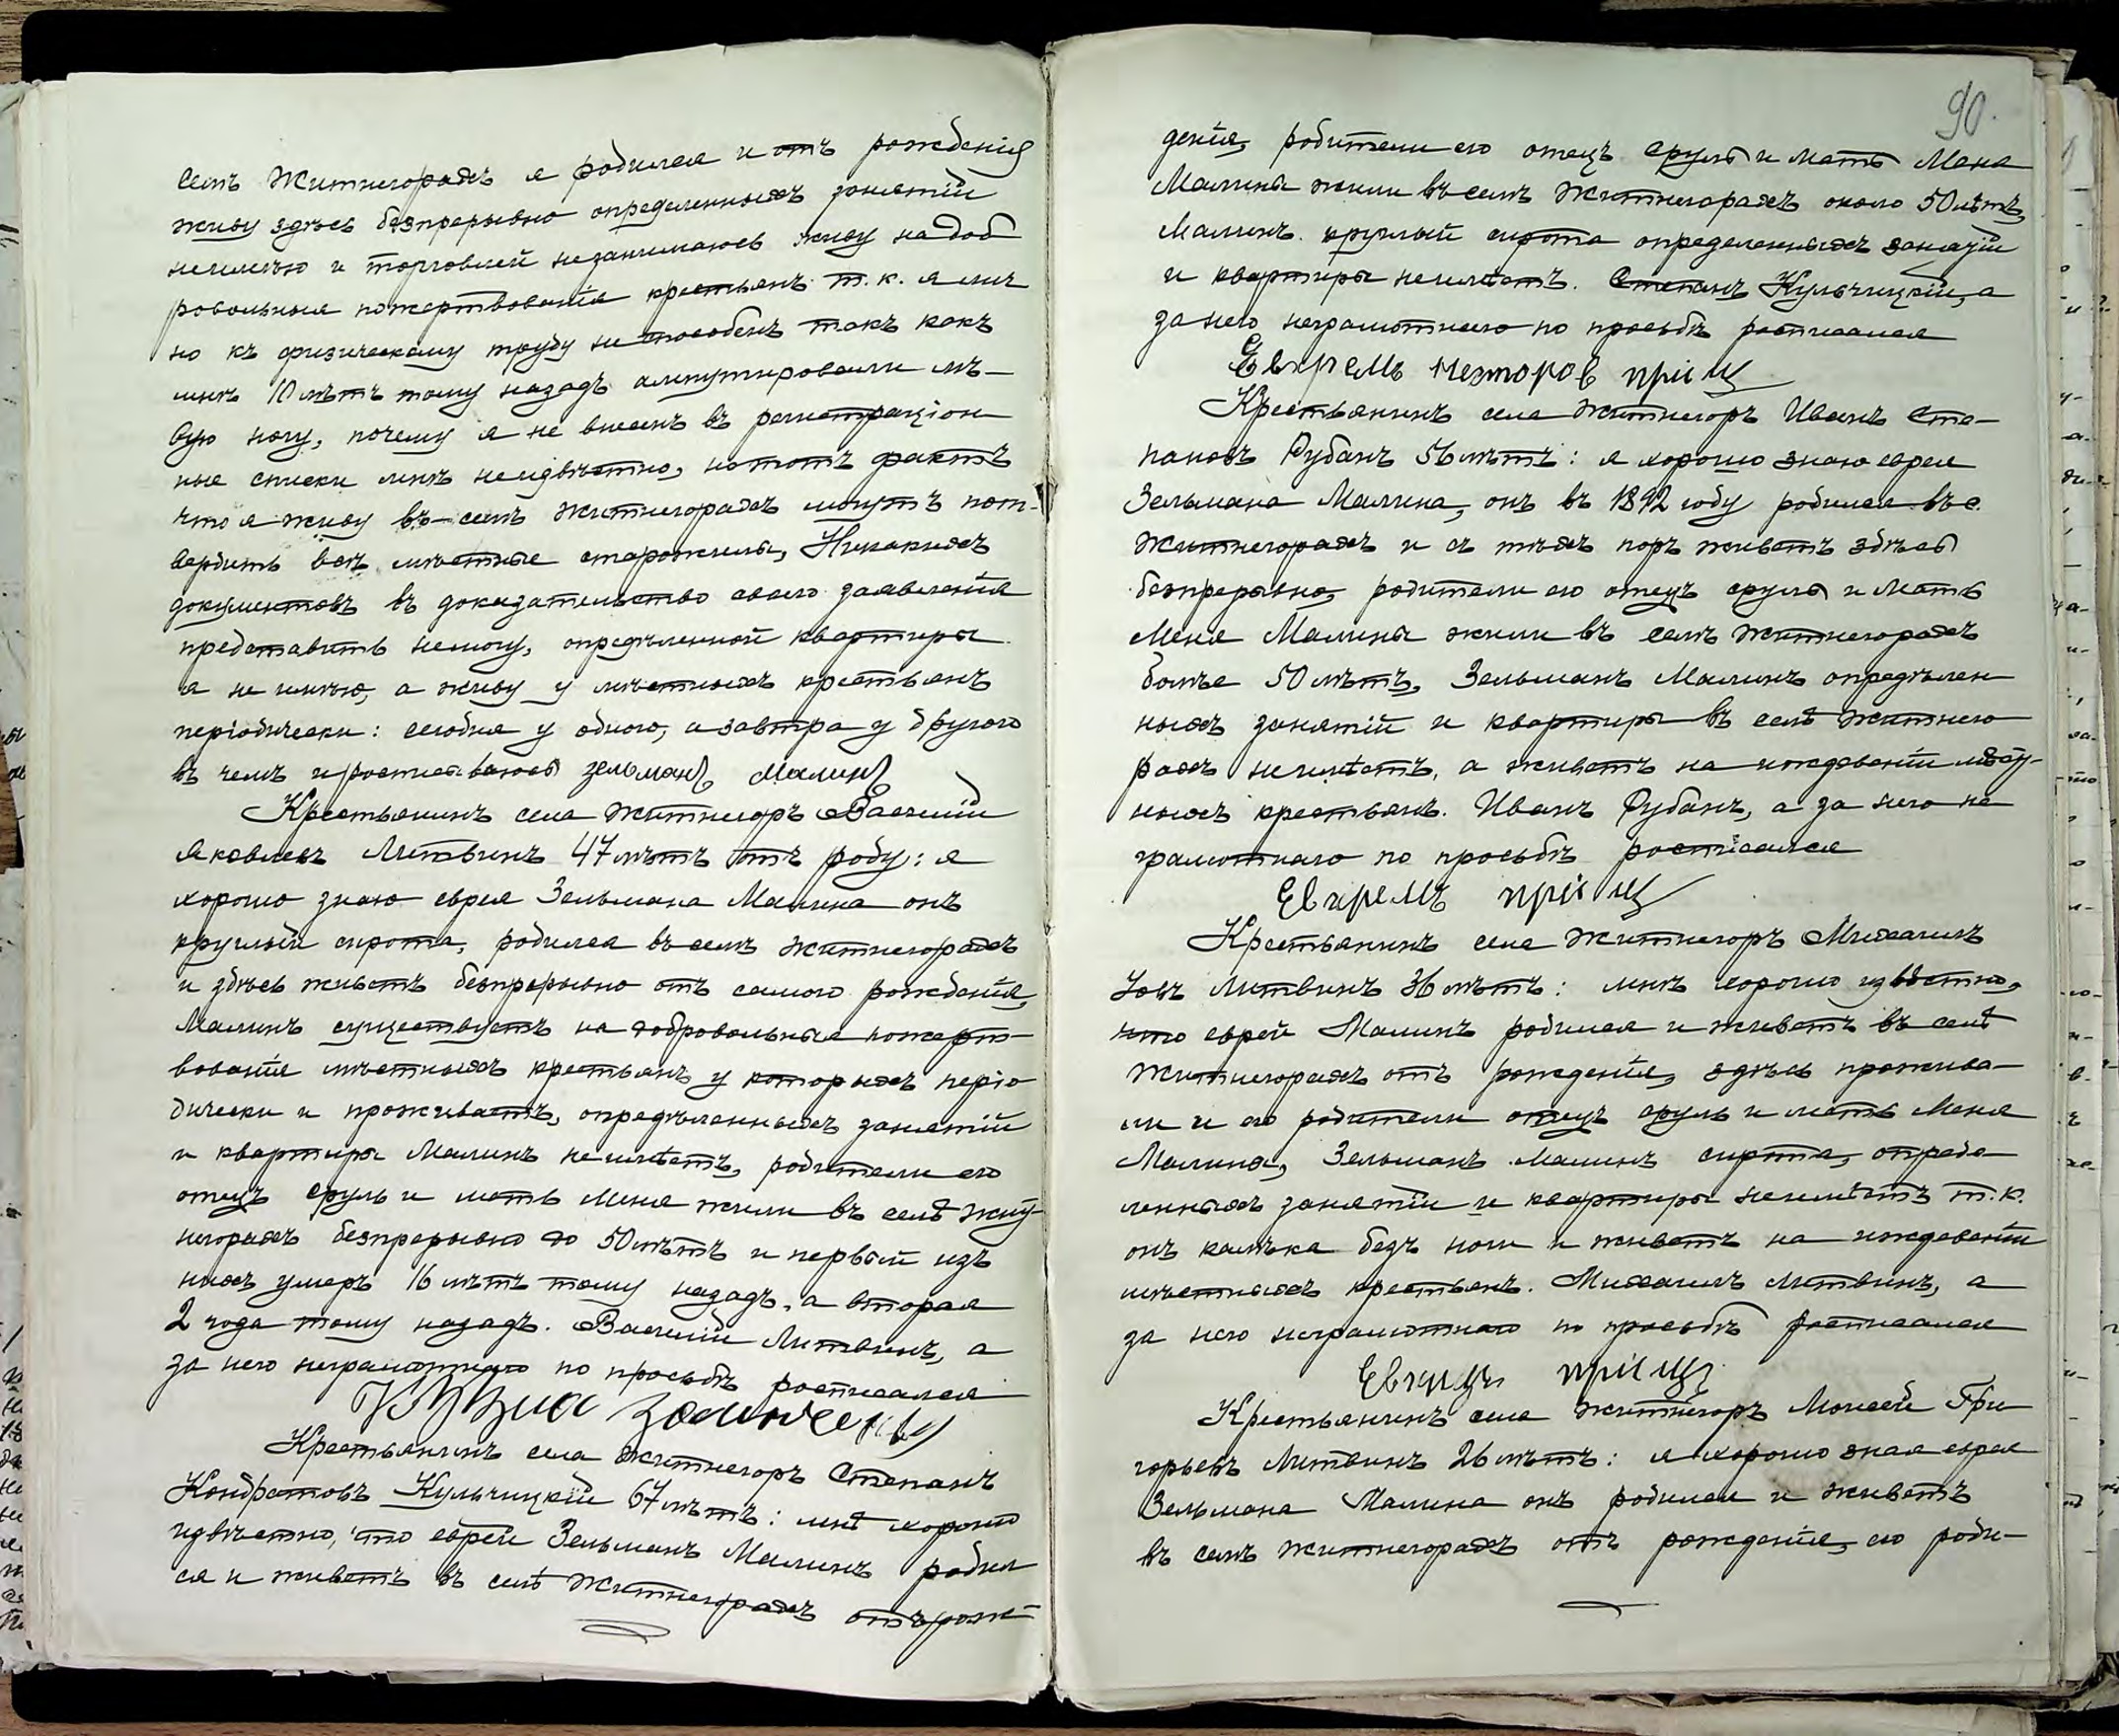 селѣ Житнегорахъ я родился и отъ рожденія
живу здѣсь безпрерывно опредѣленныхъ занятій
неимѣю и торговлей незанимаюсь живу на доб
ровольныя пожертвованія крестьянъ т.к. я лич
но къ физическому труду не способенъ такъ какъ
мнѣ 10 лѣтъ тому назадъ ампутировали лѣ-
вую ногу, почему я не внесенъ въ регистраціон
ные списки мнѣ неизвѣстно, но тотъ фактъ
что я живу въ селѣ Житнегорахъ могутъ пот-
вердить всѣ мѣстные старожилы, Никакихъ
документовъ въ доказательство своего заявленія
представить немогу, опредѣленной квартиры
я не имѣю, а живу у мѣстныхъ крестьянъ
періодически: сегодня у одного, а завтра у другого
въ чемъ и росписываюсь Зельманъ Малинъ
Крестьянинъ села Житнегоръ Василій
Яковлевъ Литвинъ 47 лѣтъ отъ роду: я
хорошо знаю еврея Зельмана Малина онъ
круглый сирота, родился въ селѣ Житнегорахъ
и здѣсь живетъ безпрерывно отъ самого рожденія,
Малинъ существуетъ на добровольныя пожерт-
вованія мѣстныхъ крестьянъ у которыхъ періо
дически и проживаетъ, опредѣленныхъ занятій
и квартиры Малинъ неимѣетъ, родители его
отецъ Сруль и мать Меня жили въ селѣ Жит-
негорахъ безпрерывно до 50 лѣтъ и первый изъ
нихъ умеръ 16 лѣтъ тому назадъ, а вторая
2 года тому назадъ. Василій Литвинъ, а
за него неграмотнаго по просьбѣ росписался
Крестьянинъ села Житнегоръ Степанъ
Кондратовъ Кульчицкій 67 лѣтъ: мнѣ хорошо
извѣстно, что еврей Зельманъ Малинъ родил
ся и живетъ въ селѣ Житнегорахъ отъ рож-
90.
денія, родители его отецъ Сруль и мать Меня
Малины жили въ селѣ Житнегорахъ около 50 лѣтъ,
Малинъ круглый сирота опредѣленныхъ занятій
и квартиры неимѣетъ. Степанъ Кульчицкій, а
за него неграмотнаго по просьбѣ росписался
Евхремъ Незторов пріщ
Крестьянинъ села Житнегоръ Иванъ Сте-
пановъ Рубанъ 56 лѣтъ: я хорошо знаю еврея
Зельмана Малина, онъ въ 1892 году родился въ с.
Житнегорахъ и съ тѣхъ поръ живетъ здѣсь
безпрерывно, родители его отецъ Сруль и мать
Меня Малины жили въ селѣ Житнегорахъ
болѣе 50 лѣтъ, Зельманъ Малинъ опредѣлен
ныхъ занятій и квартиры въ селѣ Житнего
рахъ неимѣетъ, а живетъ на иждевеніи мѣст-
ныхъ крестьянъ. Иванъ Рубанъ, а за него не
грамотнаго по просьбѣ росписался
Евхремъ пріщ
Крестьянинъ села Житнегоръ Михаилъ
Литвинъ 36 лѣтъ: мнѣ хорошо извѣстно,
что еврей Малинъ родился и живетъ въ селѣ
Житнегорахъ отъ рожденія, здѣсь прожива-
ли и его родители отецъ Сруль и мать Меня
Малина, Зельманъ Малинъ сирота, опреде
ленныхъ занятій и квартиры неимѣетъ т.к.
онъ калѣка безъ ноги и живетъ на иждевеніи
мѣстныхъ крестьянъ. Михаилъ Литвинъ, а
за него неграмотнаго по просьбѣ росписался
Евхремъ пріщ
Крестьянинъ села Житнегоръ Моисей Гри
горьевъ Литвинъ 26 лѣтъ: я хорошо зная еврея
Зельмана Малина онъ родился и живетъ
въ селѣ Житнегорахъ отъ рожденія, его роди-